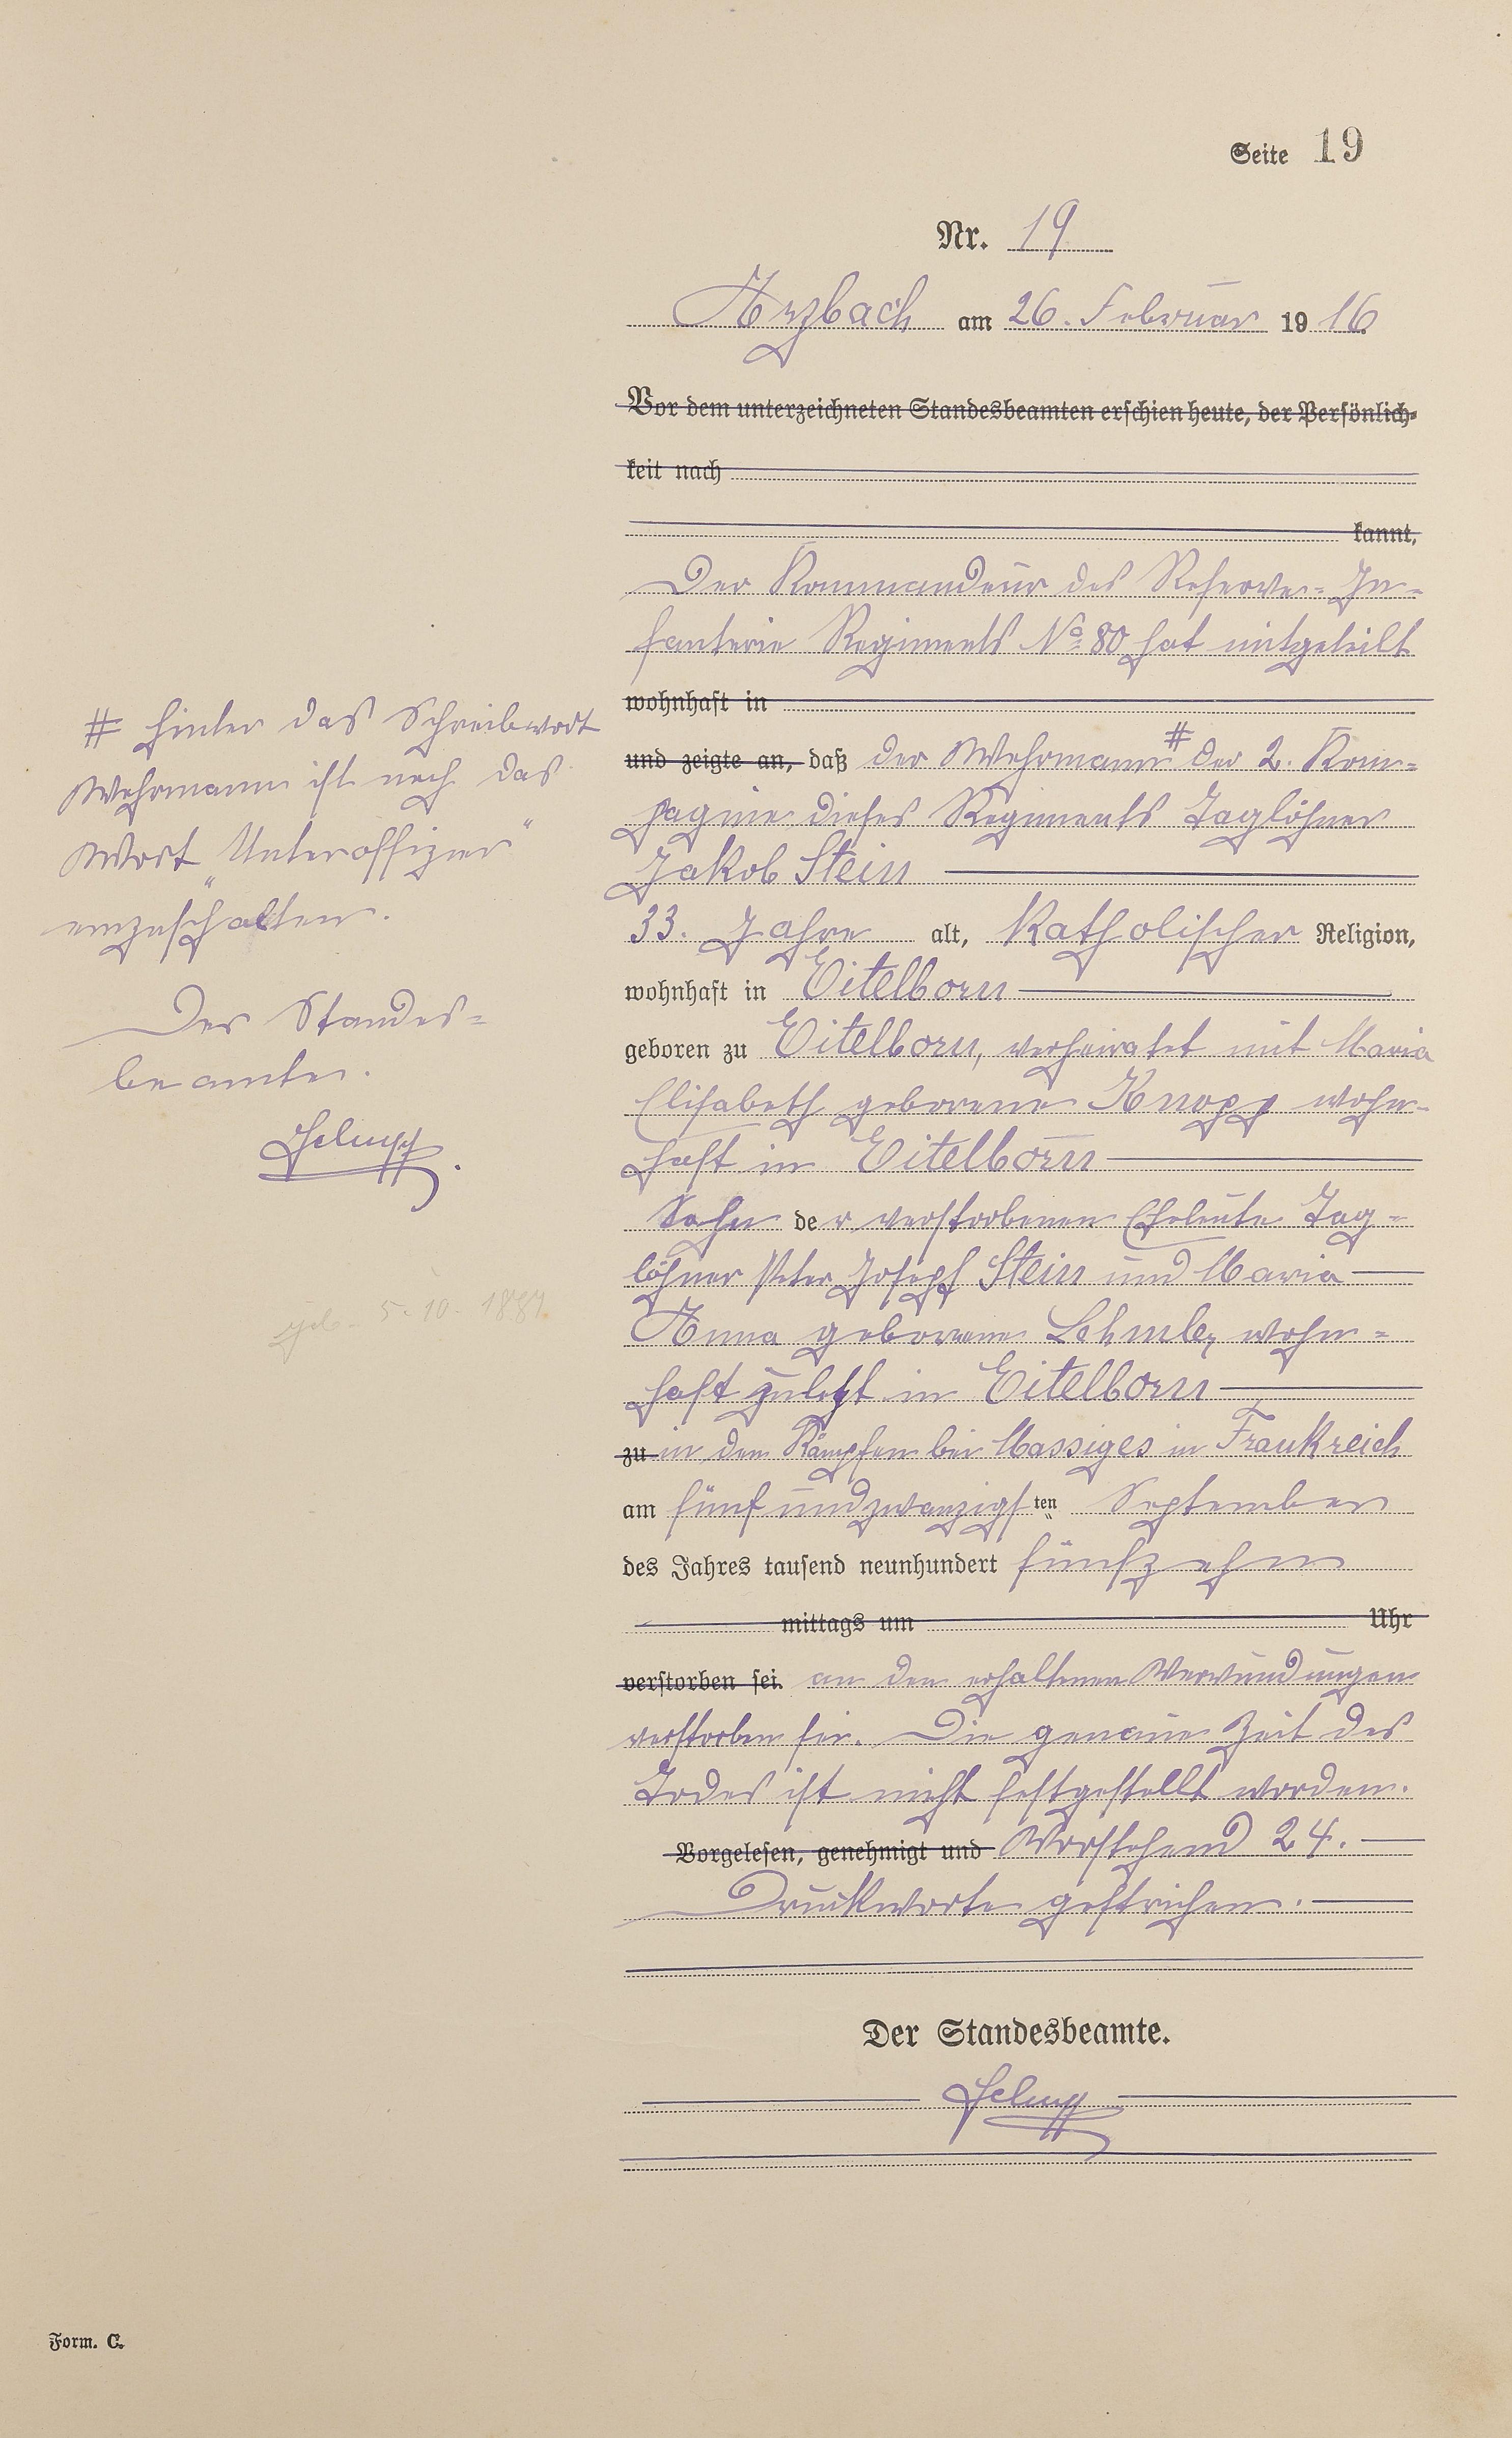 Seite 19
Nr. 19
Arzbach am 26. Februar 1916
Vor dem unterzeichneten Standesbeamten erschien heute, der Persönlich-
keit nach
kannt,
Der Kommandeur des Reserve-In-
fanterie Regiments No 80 hat mitgeteilt
wohnhaft in
und zeigte an, daß der Wehrmann # der 2. Kom-
pagnie dieses Regiments Taglöhner
Jakob Stein
33. Jahre alt, katholischer Religion,
wohnhaft in Eitelborn
geboren zu Eitelborn, verheiratet mit Maria
Elisabeth geborene Knopp wohn-
haft in Eitelborn
Sohn der verstorbenen Eheleute Tag-
löhner Peter Joseph Stein und Maria
Anna geborene wohn-
haft zuletzt in Eitelborn
zu in den Kämpfen bei Massiges in Frankreich
am fünfundzwanzigsten September
des Jahres tausend neunhundert fünfzehn
mittags um Uhr
verstorben sei. an den erhaltenen Verwundungen
verstorben sei. Die genaue Zeit des
Todes ist nicht festgestellt worden.
Vorgelesen, genehmigt und Vorstehend 24.
Druckworte gestrichen.
Der Standesbeamte.
# hinter das Schreibwort
Wehrmann ist noch das
Wort „Unteroffizier"
einzuschalten.
Der Standes-
beamte.
geb. 5.10.
Form. C.